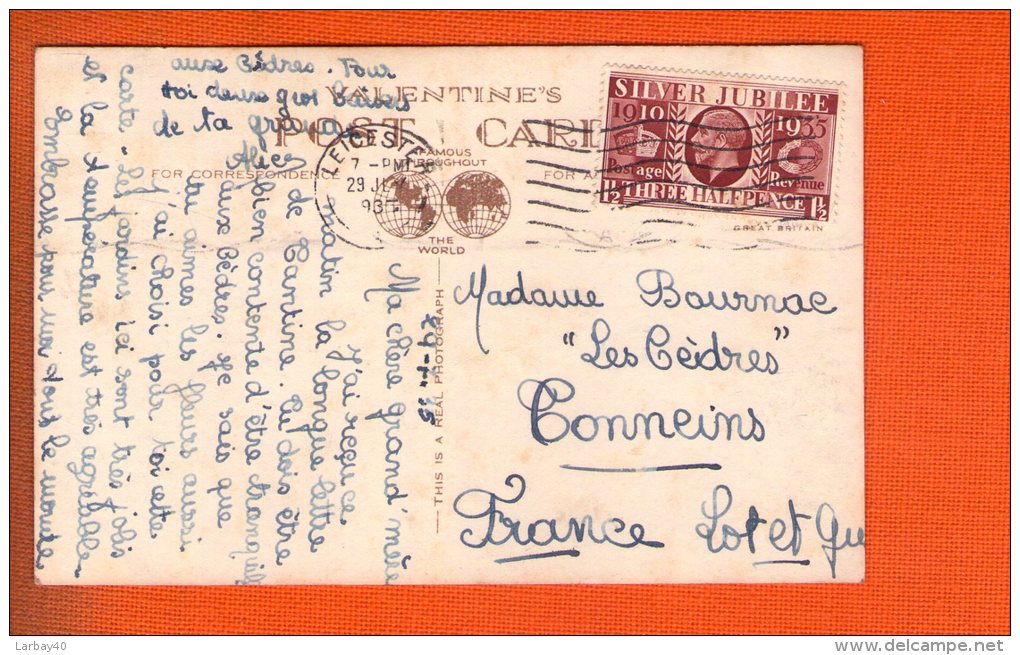 VALENTINE'S
POST CARD
FAMOUS
THROUGHOUT
THE
WORLD
FOR CORRESPONDENCE
THIS IS A REAL PHOTOGRAPH
LEICESTER
7 - PM
29 JLY
1935
SILVER JUBILEE
1910 1935
Postage Revenue
1½ THREE HALFPENCE 1½
GREAT BRITAIN
Madame Bournac
"Les Cèdres"
Tonneins
France Lot et Gu
35
Ma chère grand'mère
J'ai reçu ce
matin la longue lettre
de Tantine. Tu dois être
bien contente d'être tranquille
aux Cèdres. Je sais que
tu aimes les fleurs aussi
j'ai choisi pour toi cette
carte. Les jardins ici sont très jolis
et la température est très agréable
Embrasse pour moi tout le monde
aux Cèdres. Pour
toi deux gros baisers
de ta
Larbay40
www.delcampe.net